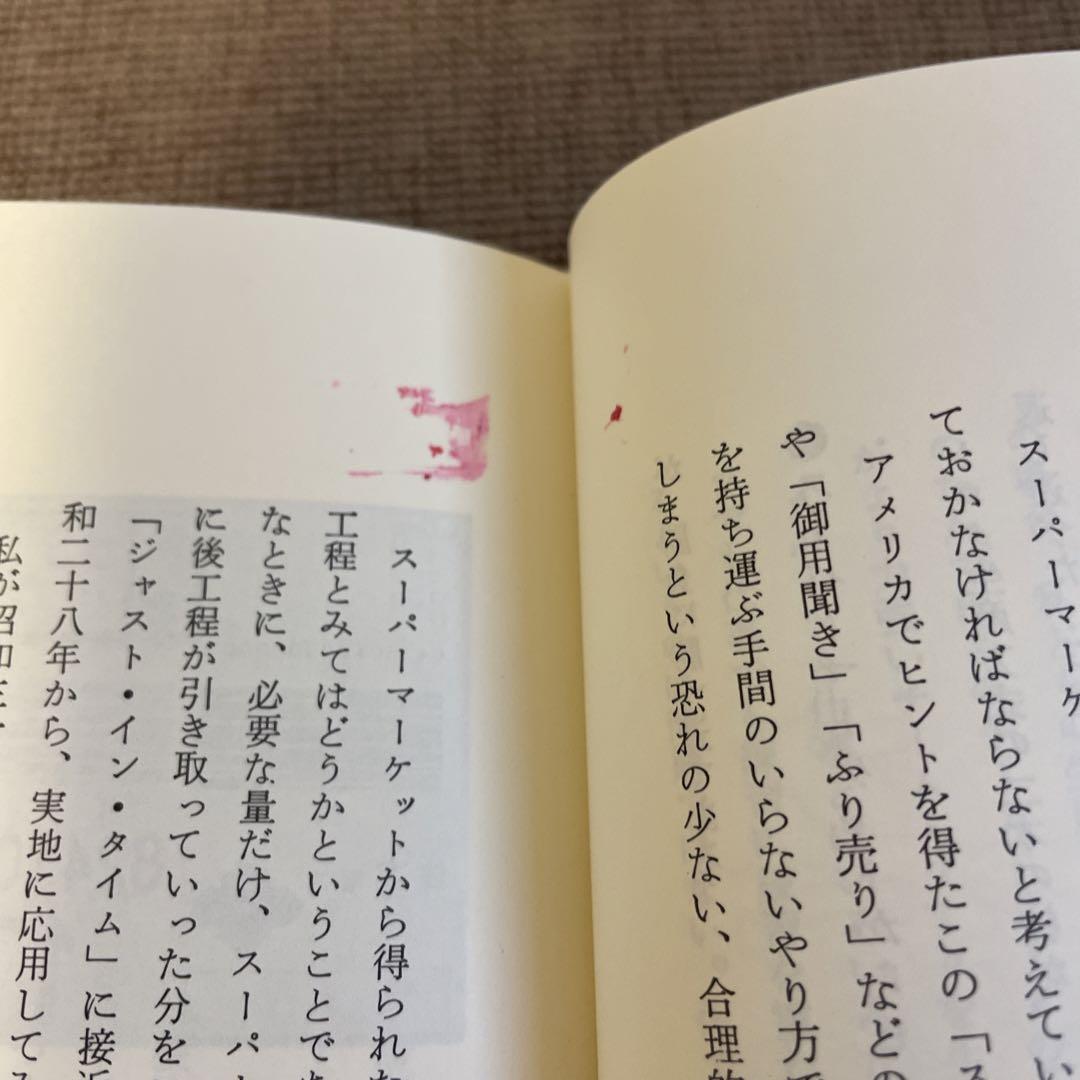 スーパーマーケ
ておかなければならないと考えてい
アメリカでヒントを得たこの「ス
や「御用聞き」「ふり売り」などの
を持ち運ぶ手間のいらないやり方で
しまうという恐れの少ない、合理的
スーパーマーケットから得られた
工程とみてはどうかということであ
なときに、必要な量だけ、スーパー
に後工程が引き取っていった分を
「ジャスト・イン・タイム」に接近
和二十八年から、実地に応用してみ
私が昭和三十